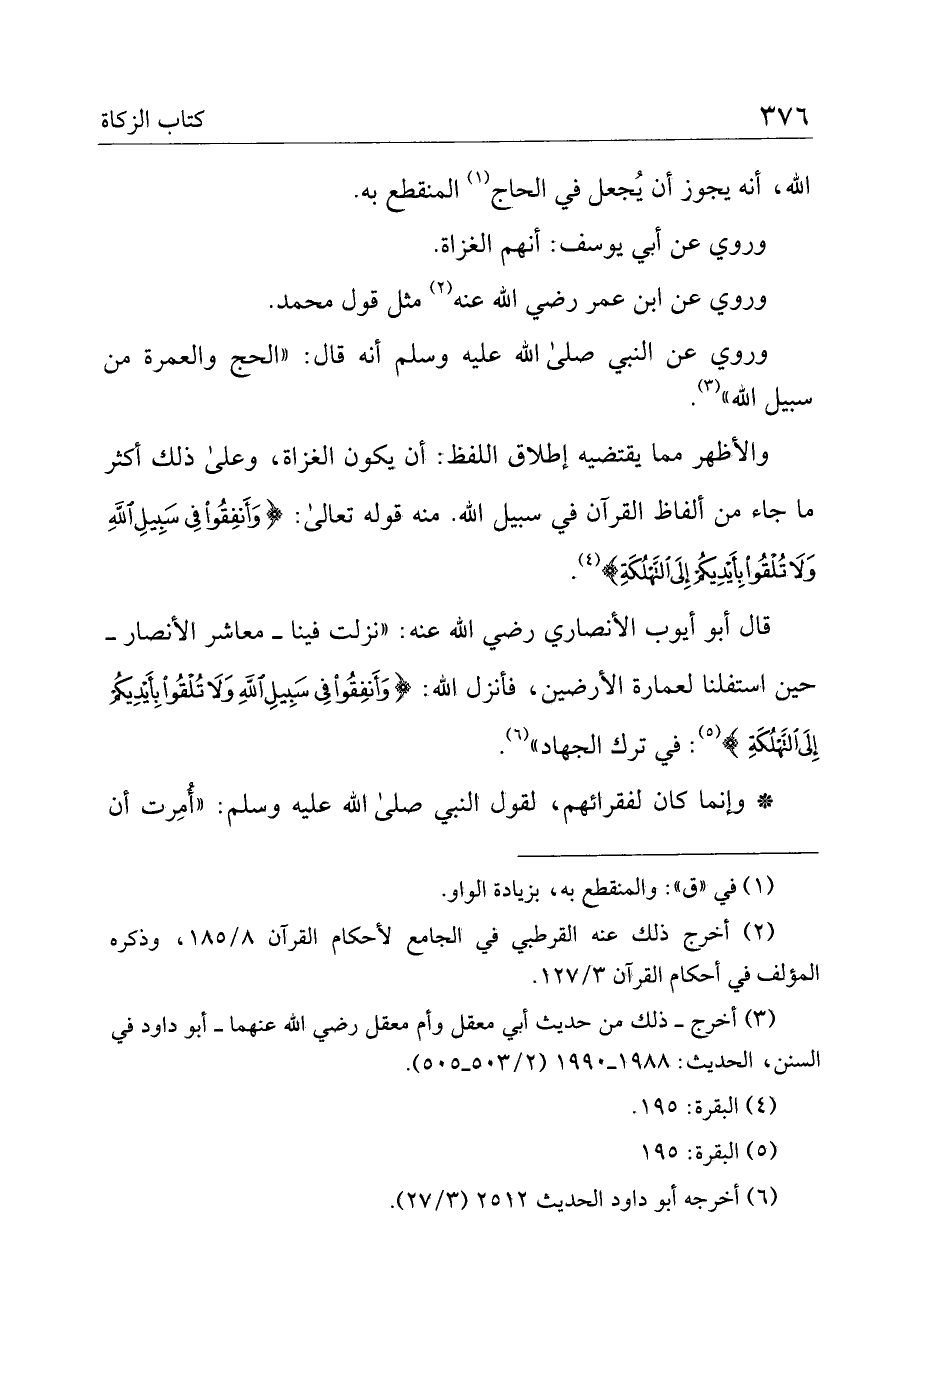 ٣٧٦ كتاب الزكاة
الله، أنه يجوز أن يُجعل في الحاج(١) المنقطع به.
وروي عن أبي يوسف: أنهم الغزاة.
وروي عن ابن عمر رضي الله عنه(٢) مثل قول محمد.
وروي عن النبي صلىٰ الله عليه وسلم أنه قال: «الحج والعمرة من
سبيل الله»(٣).
والأظهر مما يقتضيه إطلاق اللفظ: أن يكون الغزاة، وعلىٰ ذلك أكثر
ما جاء من ألفاظ القرآن في سبيل الله. منه قوله تعالىٰ: ﴿وَأَنفِقُواْ فِى سَبِيلِ ٱللَّهِ
وَلَا تُلْقُواْ بِأَيْدِيكُمْ إِلَى ٱلتَّهْلُكَةِ﴾(٤).
قال أبو أيوب الأنصاري رضي الله عنه: «نزلت فينا ـ معاشر الأنصار ـ
حين استفلنا لعمارة الأرضين، فأنزل الله: ﴿وَأَنفِقُواْ فِى سَبِيلِ ٱللَّهِ وَلَا تُلْقُواْ بِأَيْدِيكُمْ
إِلَى ٱلتَّهْلُكَةِ﴾(٥): في ترك الجهاد»(٦).
* وإنما كان لفقرائهم، لقول النبي صلىٰ الله عليه وسلم: «أُمِرت أن
(١) في «ق»: والمنقطع به، بزيادة الواو.
(٢) أخرج ذلك عنه القرطبي في الجامع لأحكام القرآن ١٨٥/٨، وذكره
المؤلف في أحكام القرآن ١٢٧/٣.
(٣) أخرج ـ ذلك من حديث أبي معقل وأم معقل رضي الله عنهما ـ أبو داود في
السنن، الحديث: ١٩٨٨ـ١٩٩٠ (٥٠٣/٢ـ٥٠٥).
(٤) البقرة: ١٩٥.
(٥) البقرة: ١٩٥
(٦) أخرجه أبو داود الحديث ٢٥١٢ (٢٧/٣).